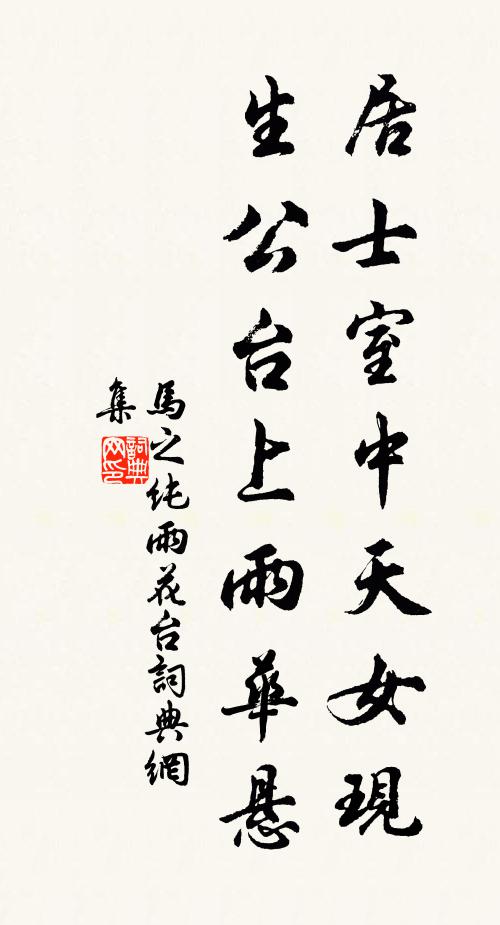 居士室中天女現
生公台上雨華悬
馬之纯雨花台詞典網
集
詞典
网印